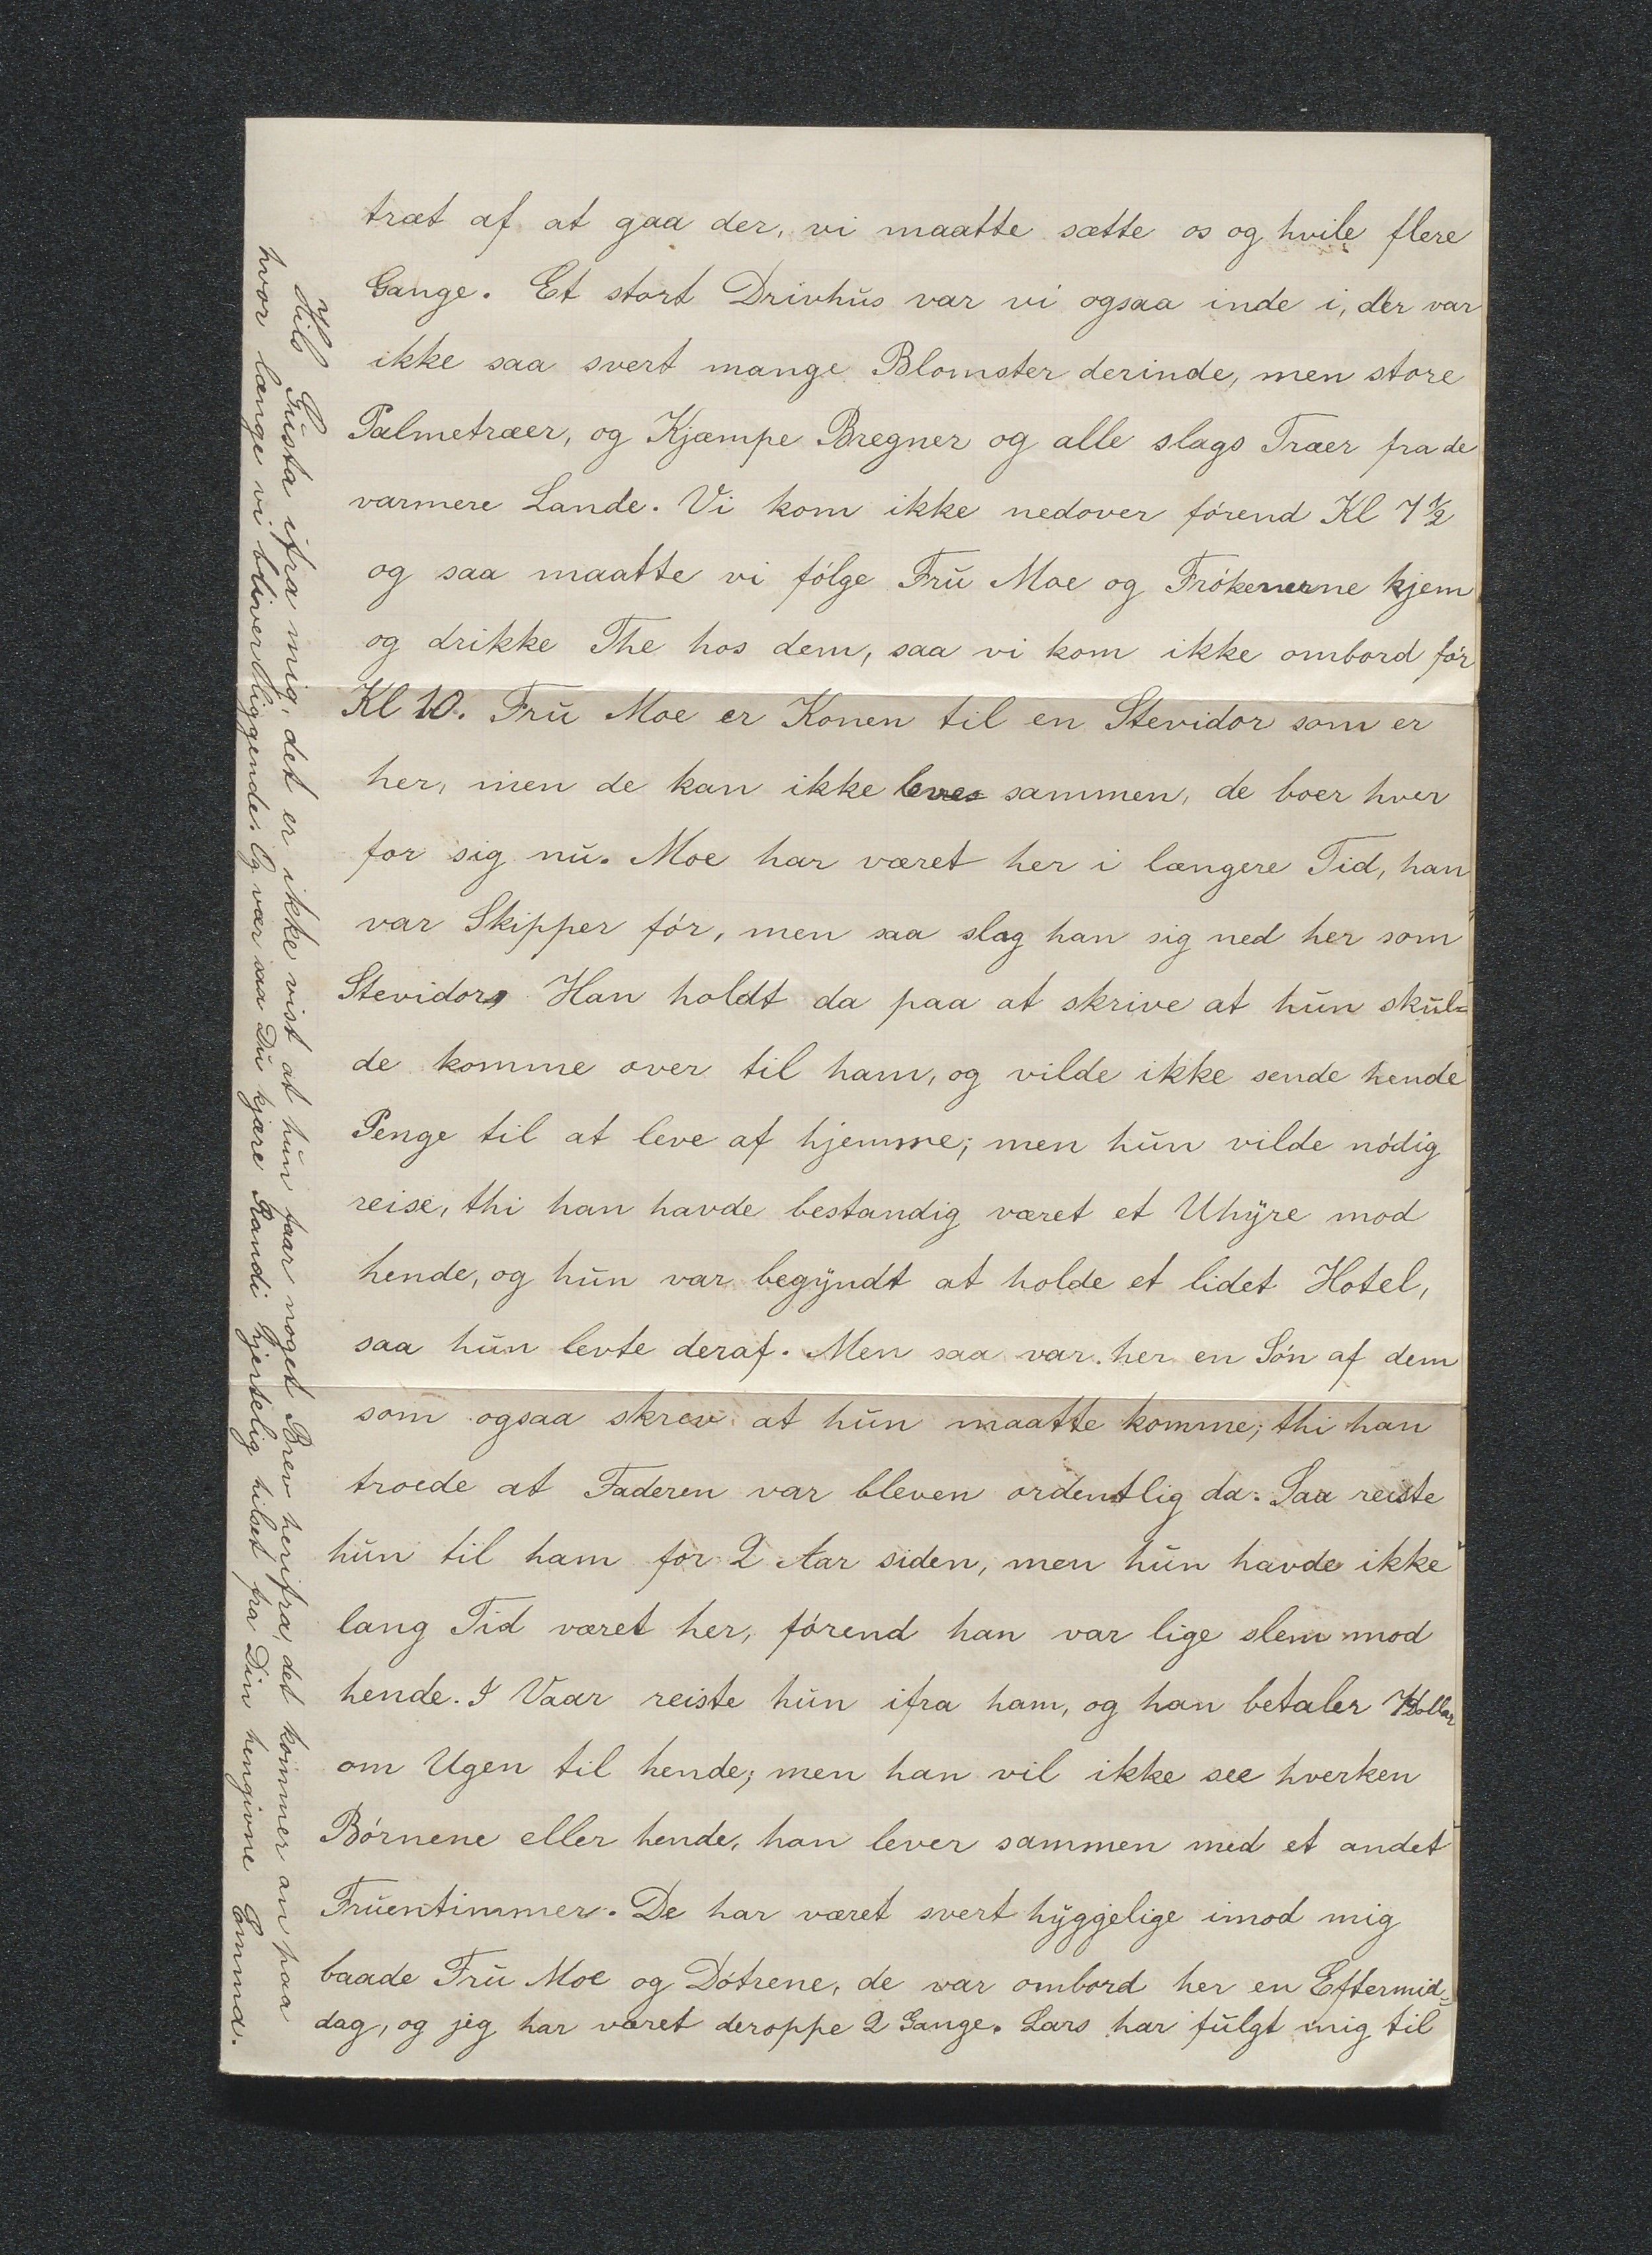 træt af at gaa der, vi maatte sætte os og hvile flere
Gange. Et stort Drivhus var vi ogsaa inde i, der var
ikke saa svert mange Blomster derinde, men store
Palmetræer, og Kjæmpe Bregner og alle slags Træer fra de
varmere Lande. Vi kom ikke nedover förend Kl 7½
og saa maatte vi fölge Fru Moe og Frökenerne hjem
og drikke The hos dem, saa vi kom ikke ombord för
Kl 10. Fru Moe er Konen til en Stevidor som er
her, men de kan ikke leve sammen, de boer hver
for sig nu. Moe har været her i længere Tid, han
var Skipper för, men saa slog han sig ned her som
Stevidor, Han holdt da paa at skrive at hun skul=
de komme over til ham, og vilde ikke sende hende
Penge til at leve af hjemme; men hun vilde nödig
reise, thi han havde bestandig været et Uhyre mod
hende, og hun var begyndt at holde et lidet Hotel,
saa hun levte deraf. Men saa var her en Sön af dem
som ogsaa skrev at hun maatte komme; thi han
troede at Faderen var bleven ordentlig da. Saa reiste
hun til ham for 2 Aar siden, men hun havde ikke
lang Tid været her, förend han var lige slem mod
hende. I Vaar reiste hun ifra ham, og han betaler Dollar
om Ugen til hende; men han vil ikke see hverken
Börnene eller hende, han lever sammen med et andet
Fruentimmer. De har været svert hyggelige imod mig
baade Fru Moe og Dötrene, de var ombord her en Eftermid=
dag, og jeg har været deroppe 2 Gange. Lars har fulgt mig til
Hils Gusta ifra mig, det er ikke vist at hun faar noget Brev herifra, det kommer an paa
hvor længe vi bliver liggende. Og vær saa Du kjære Randi hjertelig hilset fra Din hengivne Emma.